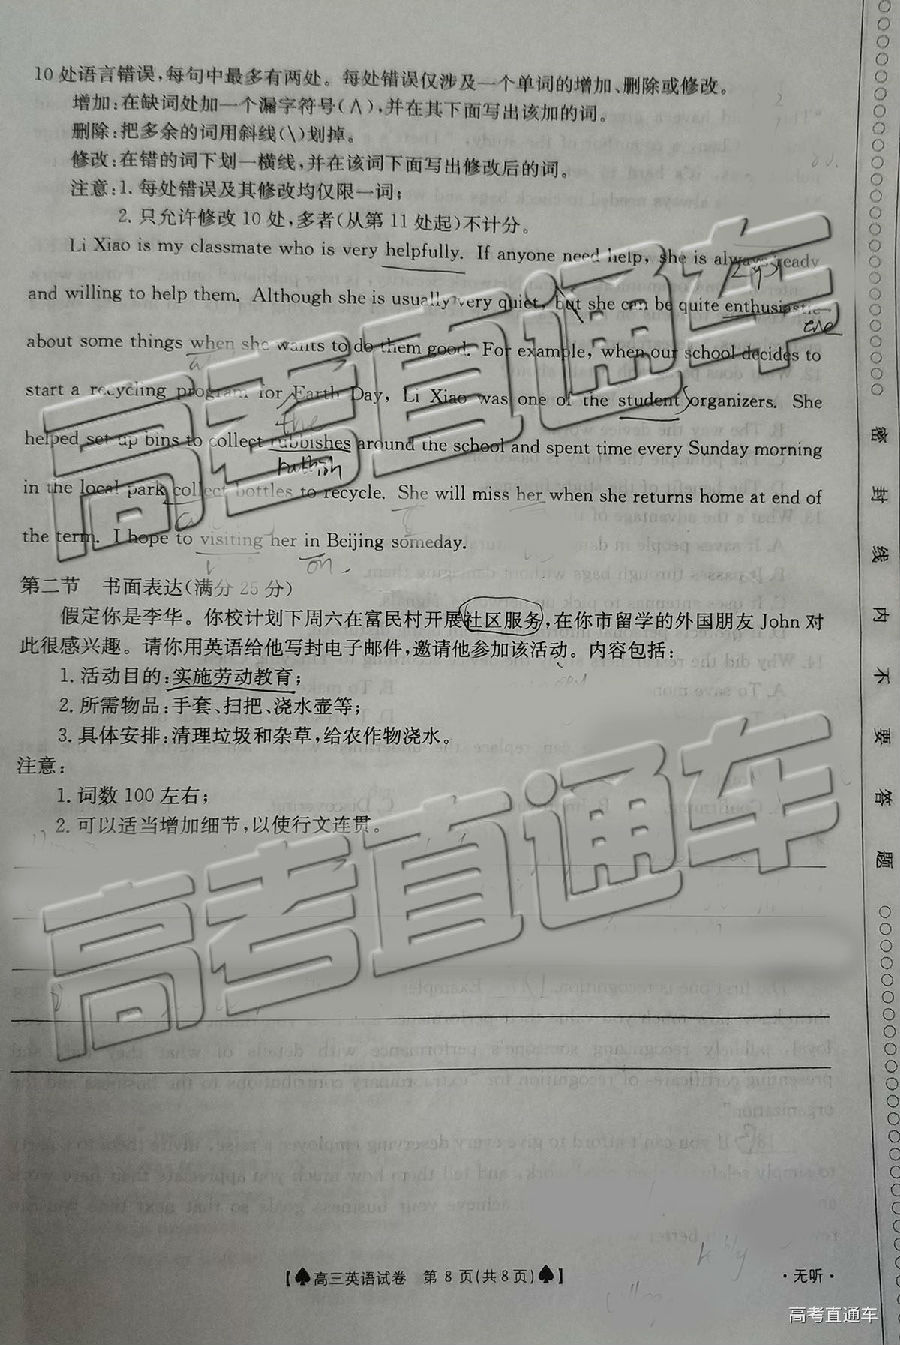 10 处语言错误,每句中最多有两处。每处错误仅涉及一个单词的增加、删除或修改。
增加:在缺词处加一个漏字符号(∧),并在其下面写出该加的词。
删除:把多余的词用斜线(\)划掉。
修改:在错的词下划一横线,并在该词下面写出修改后的词。
注意:1. 每处错误及其修改均仅限一词;
2. 只允许修改 10 处,多者(从第 11 处起)不计分。
Li Xiao is my classmate who is very helpfully. If anyone need help, she is always ready
and willing to help them. Although she is usually very quiet, but she can be quite enthusiastic
about some things when she wants to do them good. For example, when our school decides to
start a recycling program for Earth Day, Li Xiao was one of the student organizers. She
the
helped set up bins to collect rubbishes around the school and spent time every Sunday morning
in the local park collect bottles to recycle. She will miss her when she returns home at end of
the term. I hope to visiting her in Beijing someday.
on
第二节 书面表达(满分 25 分)
假定你是李华。你校计划下周六在富民村开展社区服务,在你市留学的外国朋友 John 对
此很感兴趣。请你用英语给他写封电子邮件,邀请他参加该活动。内容包括:
1. 活动目的:实施劳动教育;
2. 所需物品:手套、扫把、浇水壶等;
3. 具体安排:清理垃圾和杂草,给农作物浇水。
注意:
1. 词数 100 左右;
2. 可以适当增加细节,以使行文连贯。
密封线内不要答题
【♠高三英语试卷 第 8 页(共 8 页)♠】
·无听·
高考直通车
高考直通车
高考直通车